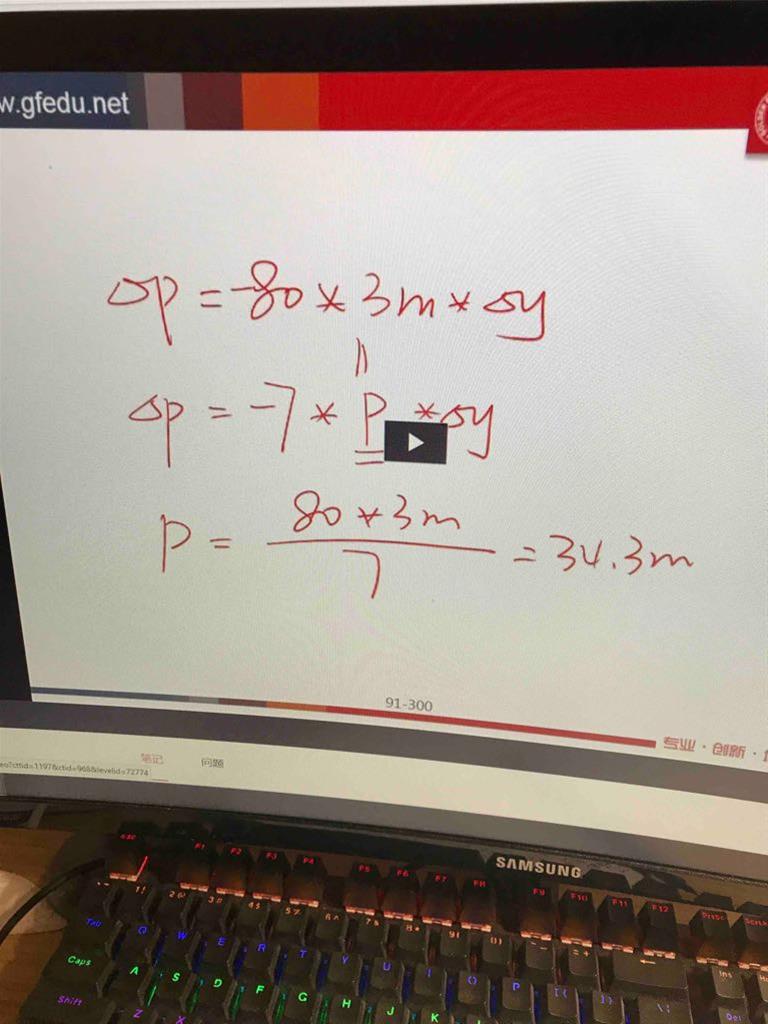 w.gfedu.net
Δp = -80 * 3m * Δy
||
Δp = -7 * P * Δy
P = 80 * 3m / 7 = 34.3m
91-300
专业 · 创新 ·
笔记 问题
eo?cttid=1197&ctid=968&levelid=72774
SAMSUNG
esc F1 F2 F3 F4 F5 F6 F7 F8 F9 F10 F11 F12 PrtSc
Tab Q W E R T Y U I O P [{ ]} \| Del
Caps A S D F G H J K L
Shift Z X
Ins